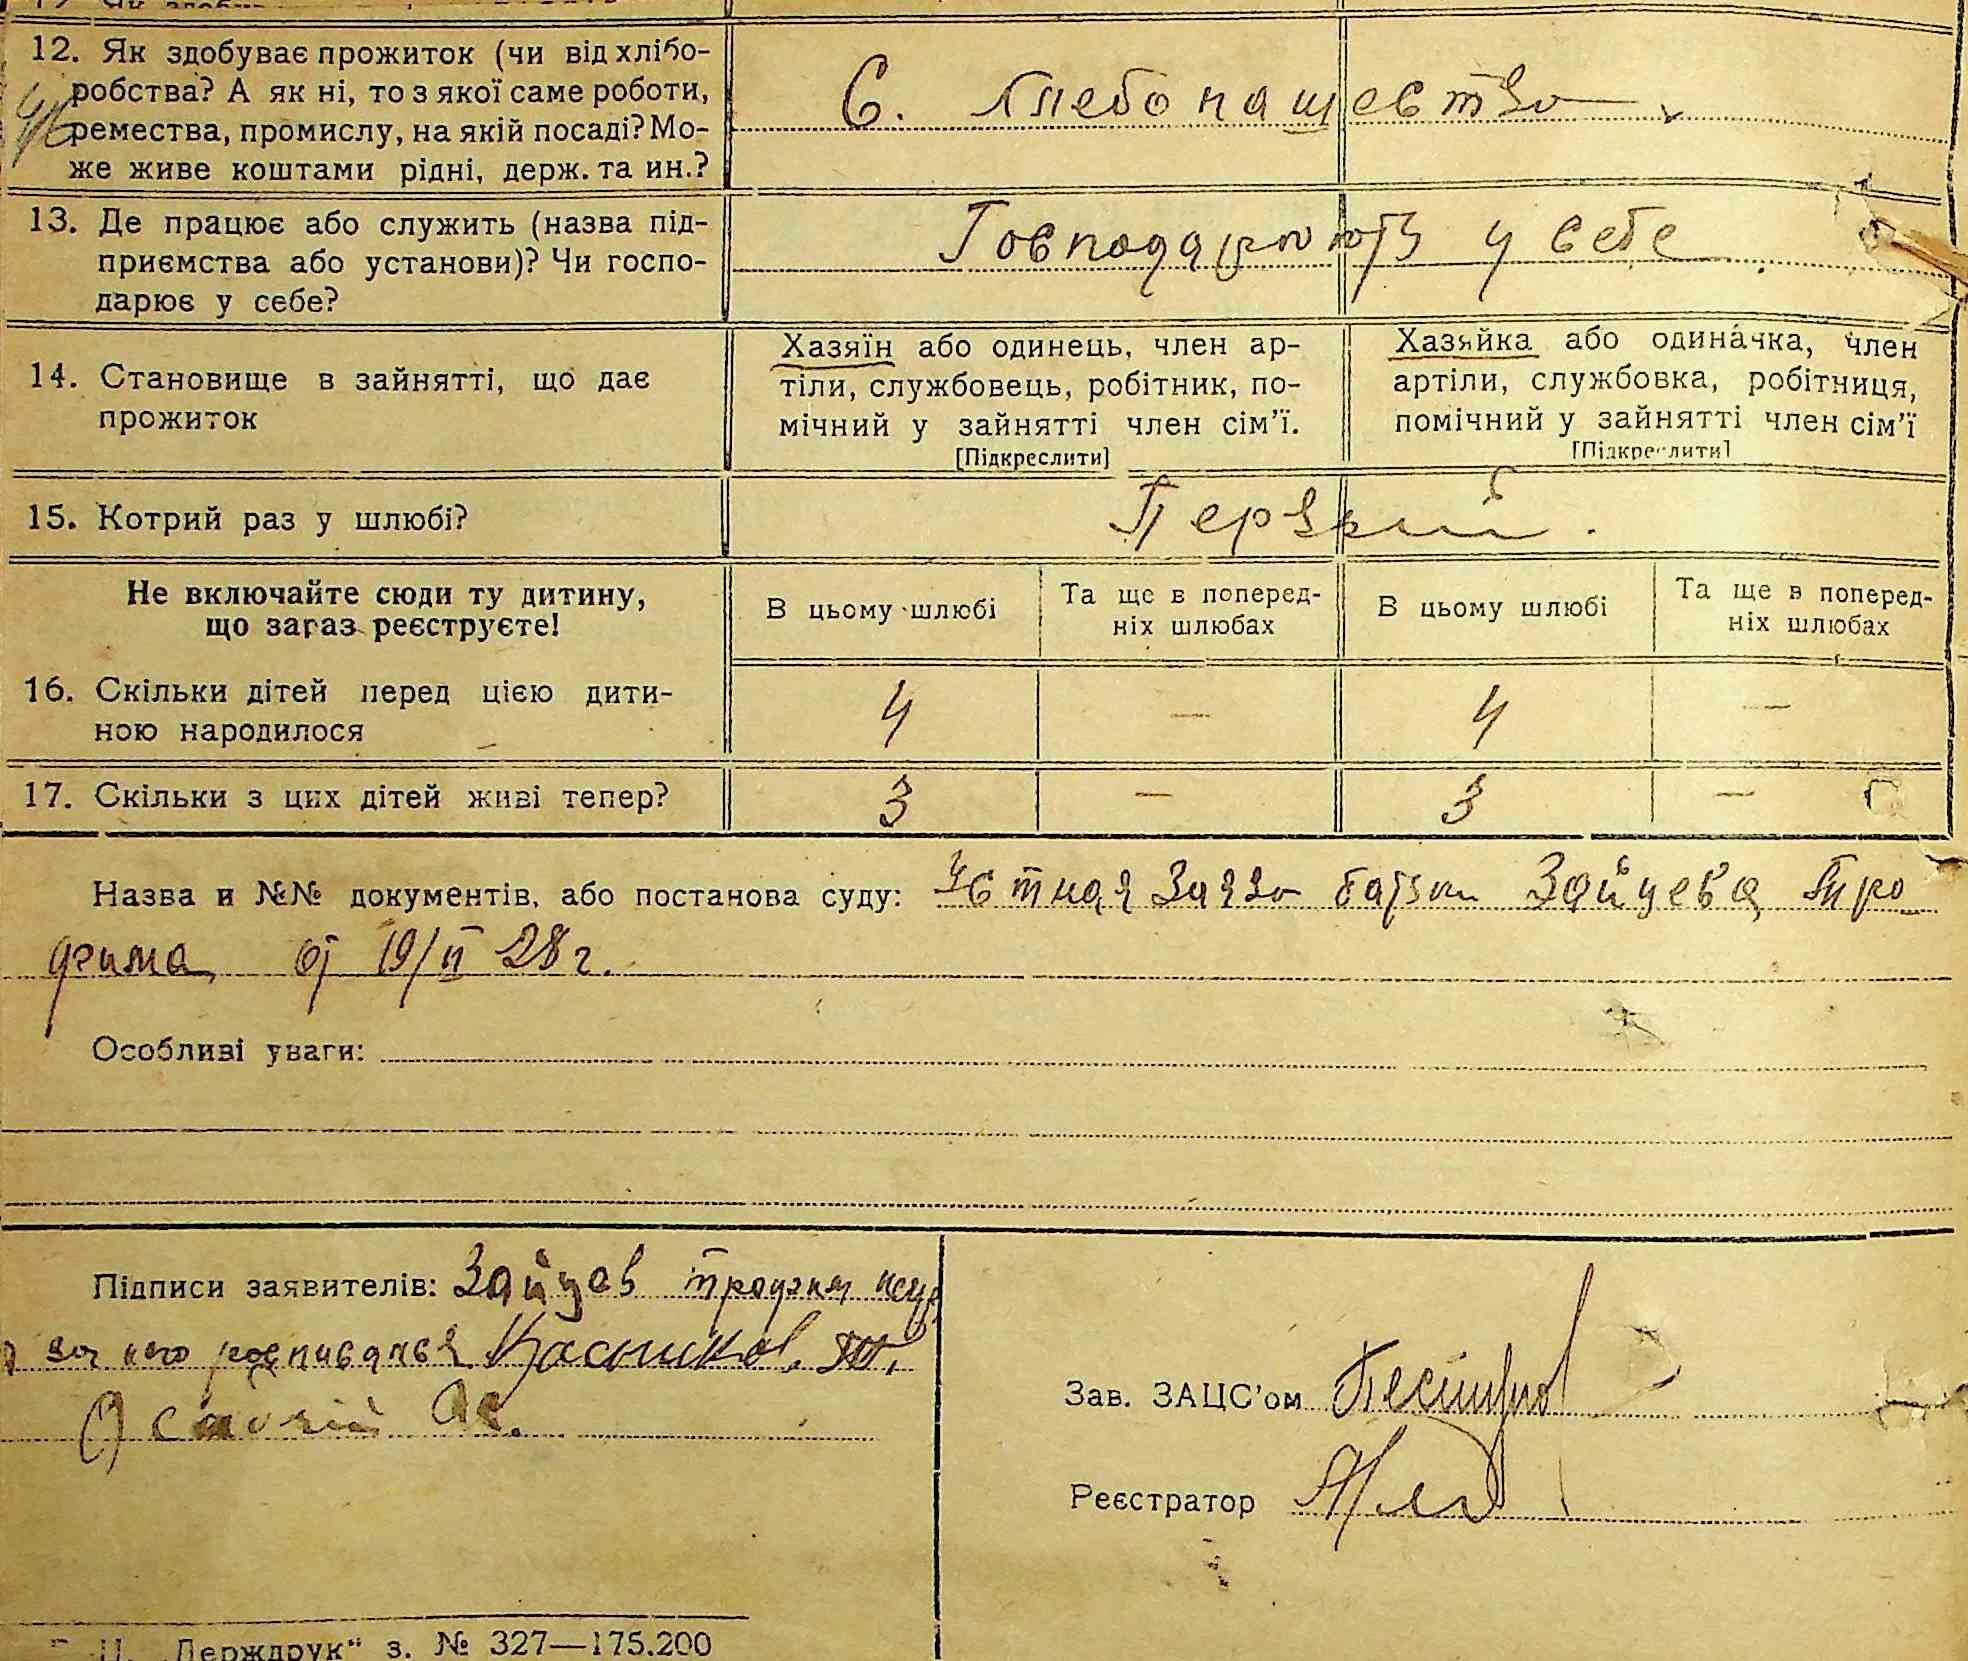 12. Як здобуває прожиток (чи від хлібо-
робства? А як ні, то з якої саме роботи,
ремества, промислу, на якій посаді? Мо-
же живе коштами рідні, держ. та ин.?
С. хлебопашевство
13. Де працює або служить (назва під-
приємства або установи)? Чи госпо-
дарює у себе?
Господарюють у себе
14. Становище в зайнятті, що дає
прожиток
Хазяїн або одинець, член ар-
тіли, службовець, робітник, по-
мічний у зайнятті член сім'ї.
[Підкреслити]
Хазяйка або одиначка, член
артіли, службовка, робітниця,
помічний у зайнятті член сім'ї
[Підкреслити]
15. Котрий раз у шлюбі?
Первый.
Не включайте сюди ту дитину,
що зараз реєструєте!
В цьому шлюбі
Та ще в поперед-
ніх шлюбах
В цьому шлюбі
Та ще в поперед-
ніх шлюбах
16. Скільки дітей перед цією дити-
ною народилося
4 — 4 —
17. Скільки з цих дітей живі тепер?
3 — 3 —
Назва и №№ документів, або постанова суду: Устная заява батьки Зайцева Тро
фима от 19/II 28 г.
Особливі уваги:
Підписи заявителів: Зайцев Трофим
за него росписался
Зав. ЗАЦС'ом
Реєстратор
„Держдрук“ з. № 327—175.200